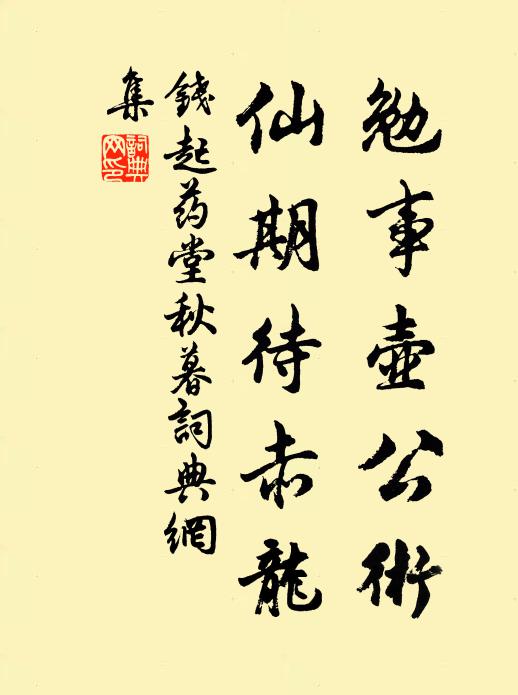 勉事壺公術
仙期待赤龍
錢起药堂秋暮詞典網
集
詞典
网印